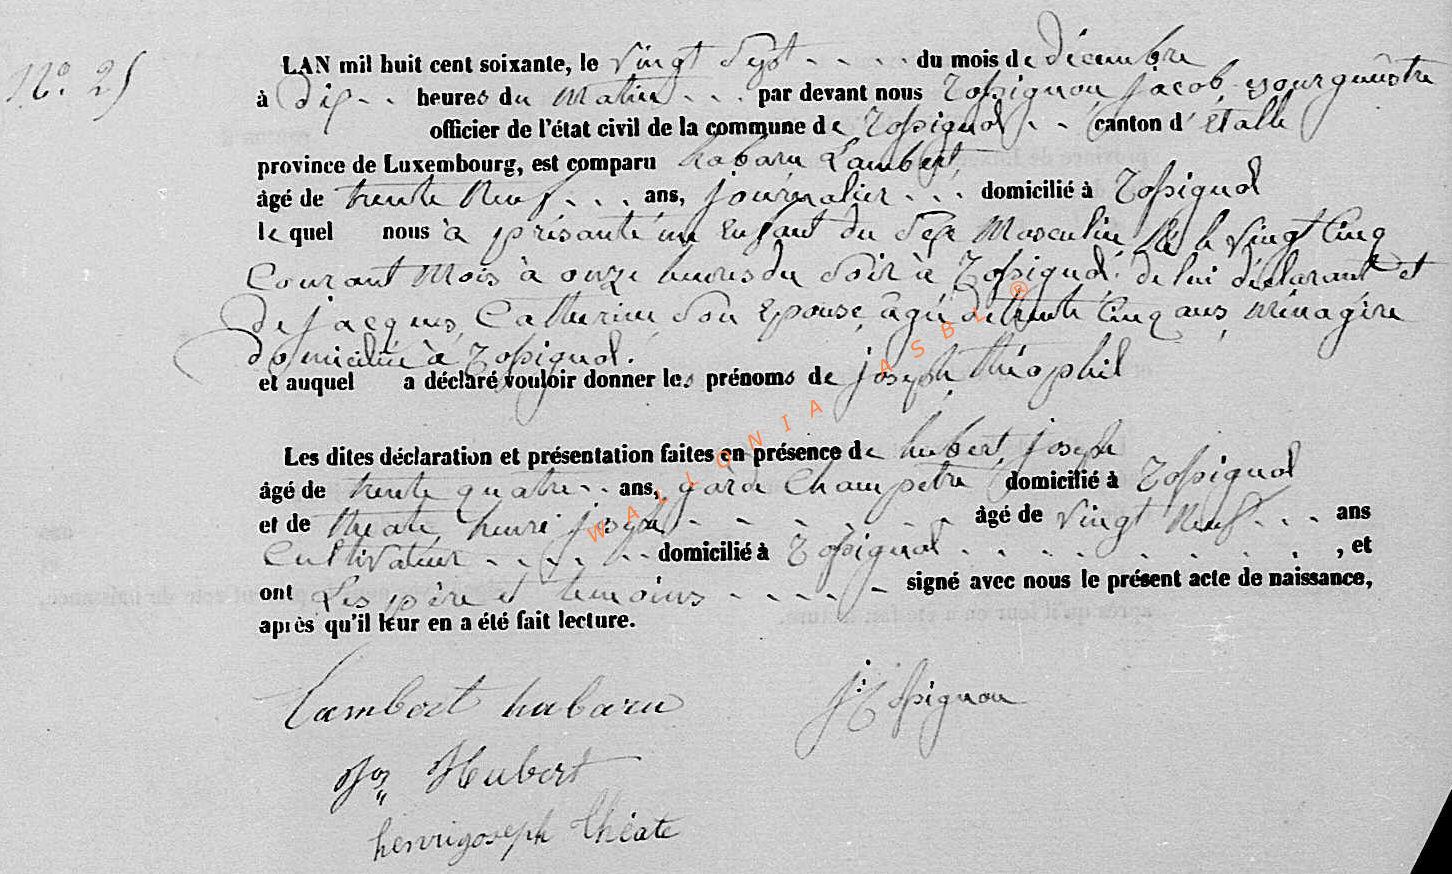 No. 25
LAN mil huit cent soixante, le vingt Sept du mois de décembre
à dix heures du matin par devant nous Tossignon Jacob Bourgmestre
officier de l'état civil de la commune de Tossignol canton d'étalle
province de Luxembourg, est comparu habaru Lambert
âgé de trente neuf ans, journalier domicilié à Tossignol
le quel nous à présanté un Enfant du Sexe Masculin né le vingt Cinq
Courant Mois à onze heures du Soir à Tossignol, de lui déclarant et
de jacques, Catherine Son Epouse, âgée de trente Cinq ans, ménagère
domiciliée à Tossignol.
et auquel a déclaré vouloir donner les prénoms de joseph théophil
Les dites déclaration et présentation faites en présence de hubert joseph
âgé de trente quatre ans, garde Champetre domicilié à Tossignol
et de théate henri joseph âgé de vingt neuf ans
Cultivateur domicilié à Tossignol , et
ont Les père et temoins signé avec nous le présent acte de naissance,
après qu'il leur en a été fait lecture.
Lambert habaru J: Tossignon
Jos Hubert
henri joseph théate
WALLONIA ASBL ®